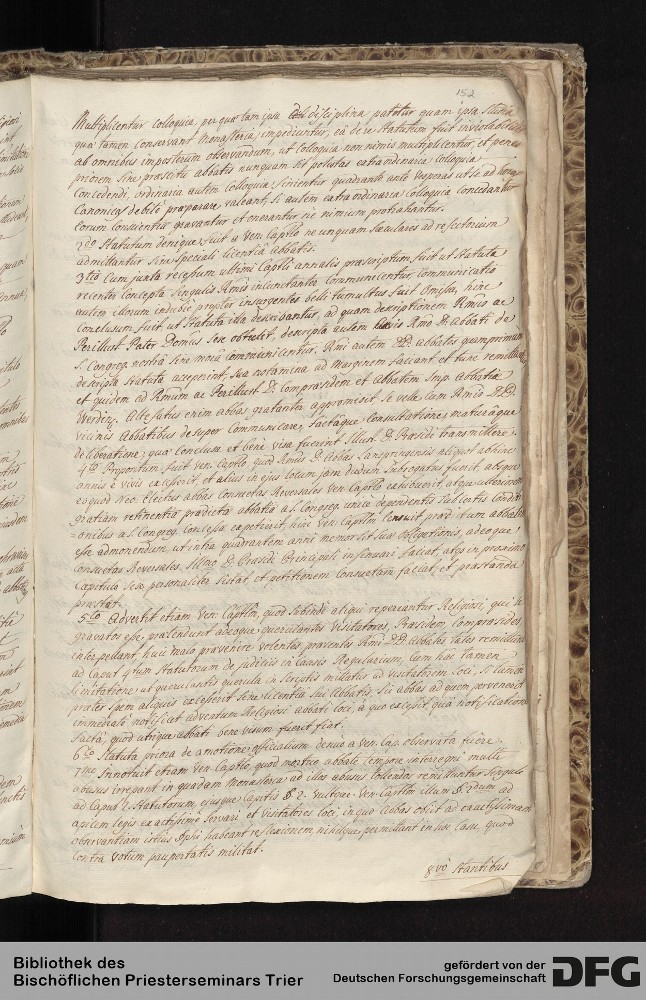 152
Multiplicentur Colloquia, per quæ tam ipsa disciplina patitur quam ipsa Studia
quâ tamen conservant Monasteria, impediuntur, eâ de re Statutum fuit inviolabiliter
ab omnibus imposterum observandum, ut Colloquia non nimis multiplicentur, et penes
priorem sine præscitu abbatis nunquam sit potestas extraordinaria Colloquia
Concedendi, ordinaria autem Colloquia finientur quadrante ante Vesperas ut se ad horas
Canonicas debitè præparare valeant, si autem extraordinaria Colloquia concedantur
eorum Conscientia gravantur et onerantur ne nimium protrahantur.
2do Statutum denique fuit a Ven: Captlo ne unquam sæculares ad refectorium
admittantur sine speciali licentiâ Abbatis.
3tiò Cum juxta recessum ultimi Captli annalis præscriptum fuit ut Statuta
recenter concepta singulis Rmis incunctanter Communicentur, Communicatio
autem illorum propter insurgentes belli tumultus fuit omissa, hinc
Conclusum fuit ut Statuta illa describantur, ad quam descriptionem Rmus ac
Perillust: Pater Domus sese obtulit, descripta autem Rmo D: Abbati de
S: Congreg: nostrâ sine morâ communicentur. Rmi autem DD. abbates quamprimum
descripta Statuta acceperint sua notamina ad Marginem faciant et tunc remittant
et quidem ad Rmum ac Perillust: D: Compræsidem et Abbatem Imp: Abbatiæ
Werdin: Alte fatus enim abbas gratanter appromisit se velle cum Rmis DD:
vicinis Abbatibus desuper Communicare, factâque Consultatione, maturâque
deliberatione, quâ Conclusa et benè visa fuerint Illust: D: Præsidi transmittere.
4tò Propositum fuit Ven: Captlo, quod Rmus D: Abbas Lanspringensis aliquot abhinc
annis è vivis excesserit, et alius in ejus locum jam dudum subrogatus fuerit, absque
eo quod neo Electus abbas Consuetas Reversales Ven: Captlo exhibuerit, atque ulteriorem
gratiam retinentiæ prædictæ abbatiæ a S: Congreg: unicè dependentis sub certis Condit
=ionibus a S: Congreg: Concessa expetierit, hinc Ven: Captlm censuit prædictum abbatem
esse admonendum, ut intra quadrantem anni memor sit suæ obligationis, adeoque
Consuetas Reversales Illmo D: Præsidi Principali insinuari faciat, atque in proximo
Capitulo sese personaliter sistat, et petitionem Consuetam faciat, et præstanda
præstat.
5tò Advertit etiam Ven: Captlm, quod subinde aliqui reperiantur Religiosi, qui se
gravatos esse prætendunt adeoque querulantes Visitatores, Præsidem, Compræsides
interpellant, huic malo prævenire volentes præsentes Rmi DD Abbates tales remittunt
ad Caput 4tum Statutorum de judiciis in Causis Regularium, Cum hac tamen
limitatione ut querulantes querula in scriptis mittatur ad visitatorem loci, si tamen
præter spem aliquis excesserit sine licentia sui Abbatis, sic abbas ad quem pervenerit
immediatè notificat adventum Religiosi abbati loci, à quo excessit, quâ notificatione
factâ, quod utrique abbati benè visum fuerit fiat.
6tò Statuta priora de amotione officialium denuo a Ven: Cap: observata fuêre
7mò Innotuit etiam Ven: Captlo, quod mortuo abbate tempore interregni multi
abusus irrepant in quædam Monasteria ad illos abusus tollendos remittuntur singuli
ad Caput 2. Statutorum, ejusque Capitis § 2. vultque Ven: Captlm illum § 2dum ad
apicem legis exactissimè servari et visitatores loci, in quo Abbas obiit ad exactissimam
observantiam istius §phi habeant reflexionem, nihilque permittant in hoc Casu, quod
Contra votum paupertatis militat.
8vò Stantibus
Bibliothek des
Bischöflichen Priesterseminars Trier
gefördert von der
Deutschen Forschungsgemeinschaft
DFG